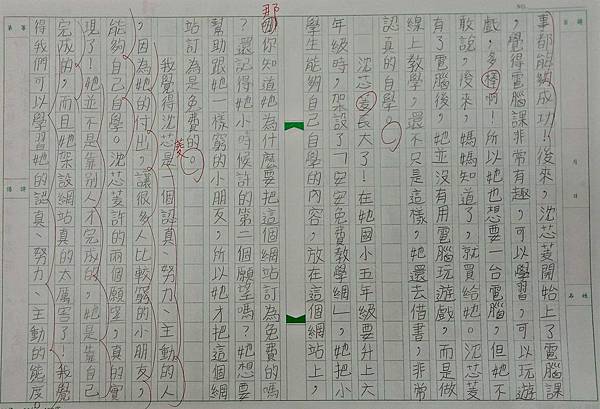 事都能夠成功！後來，沈芯菱開始上了電腦課
，覺得電腦課非常有趣，可以學習，可以玩遊
戲，多棒啊！所以她也想要一台電腦，但她不
敢說，後來，媽媽知道了，就買給她。沈芯菱
有了電腦後，她並沒有用電腦玩遊戲，而是做
線上教學，還不只是這樣，她還去借書，非常
認真的自學。
沈芯菱長大了！在她國小五年級要升上六
年級時，架設了「安安免費教學網」，她把小
學生能夠自己自學的內容，放在這個網站上，
那你知道她為什麼要把這個網站訂為免費的嗎
？還記得她小時候許的第二個願望嗎？她想要
幫助跟她一樣窮的小朋友，所以她才把這個網
站訂為是免費的。
我覺得沈芯菱是一個認真、努力、主動的人
，因為她的付出，讓很多人比較窮的小朋友，
能夠自己自學。沈芯菱許的兩個願望，真的實
現了！她並不是靠別人才完成的，她是靠自己
完成的，而且她架設網站真的太厲害了！我覺
得我們可以學習她的認真、努力、主動的態度